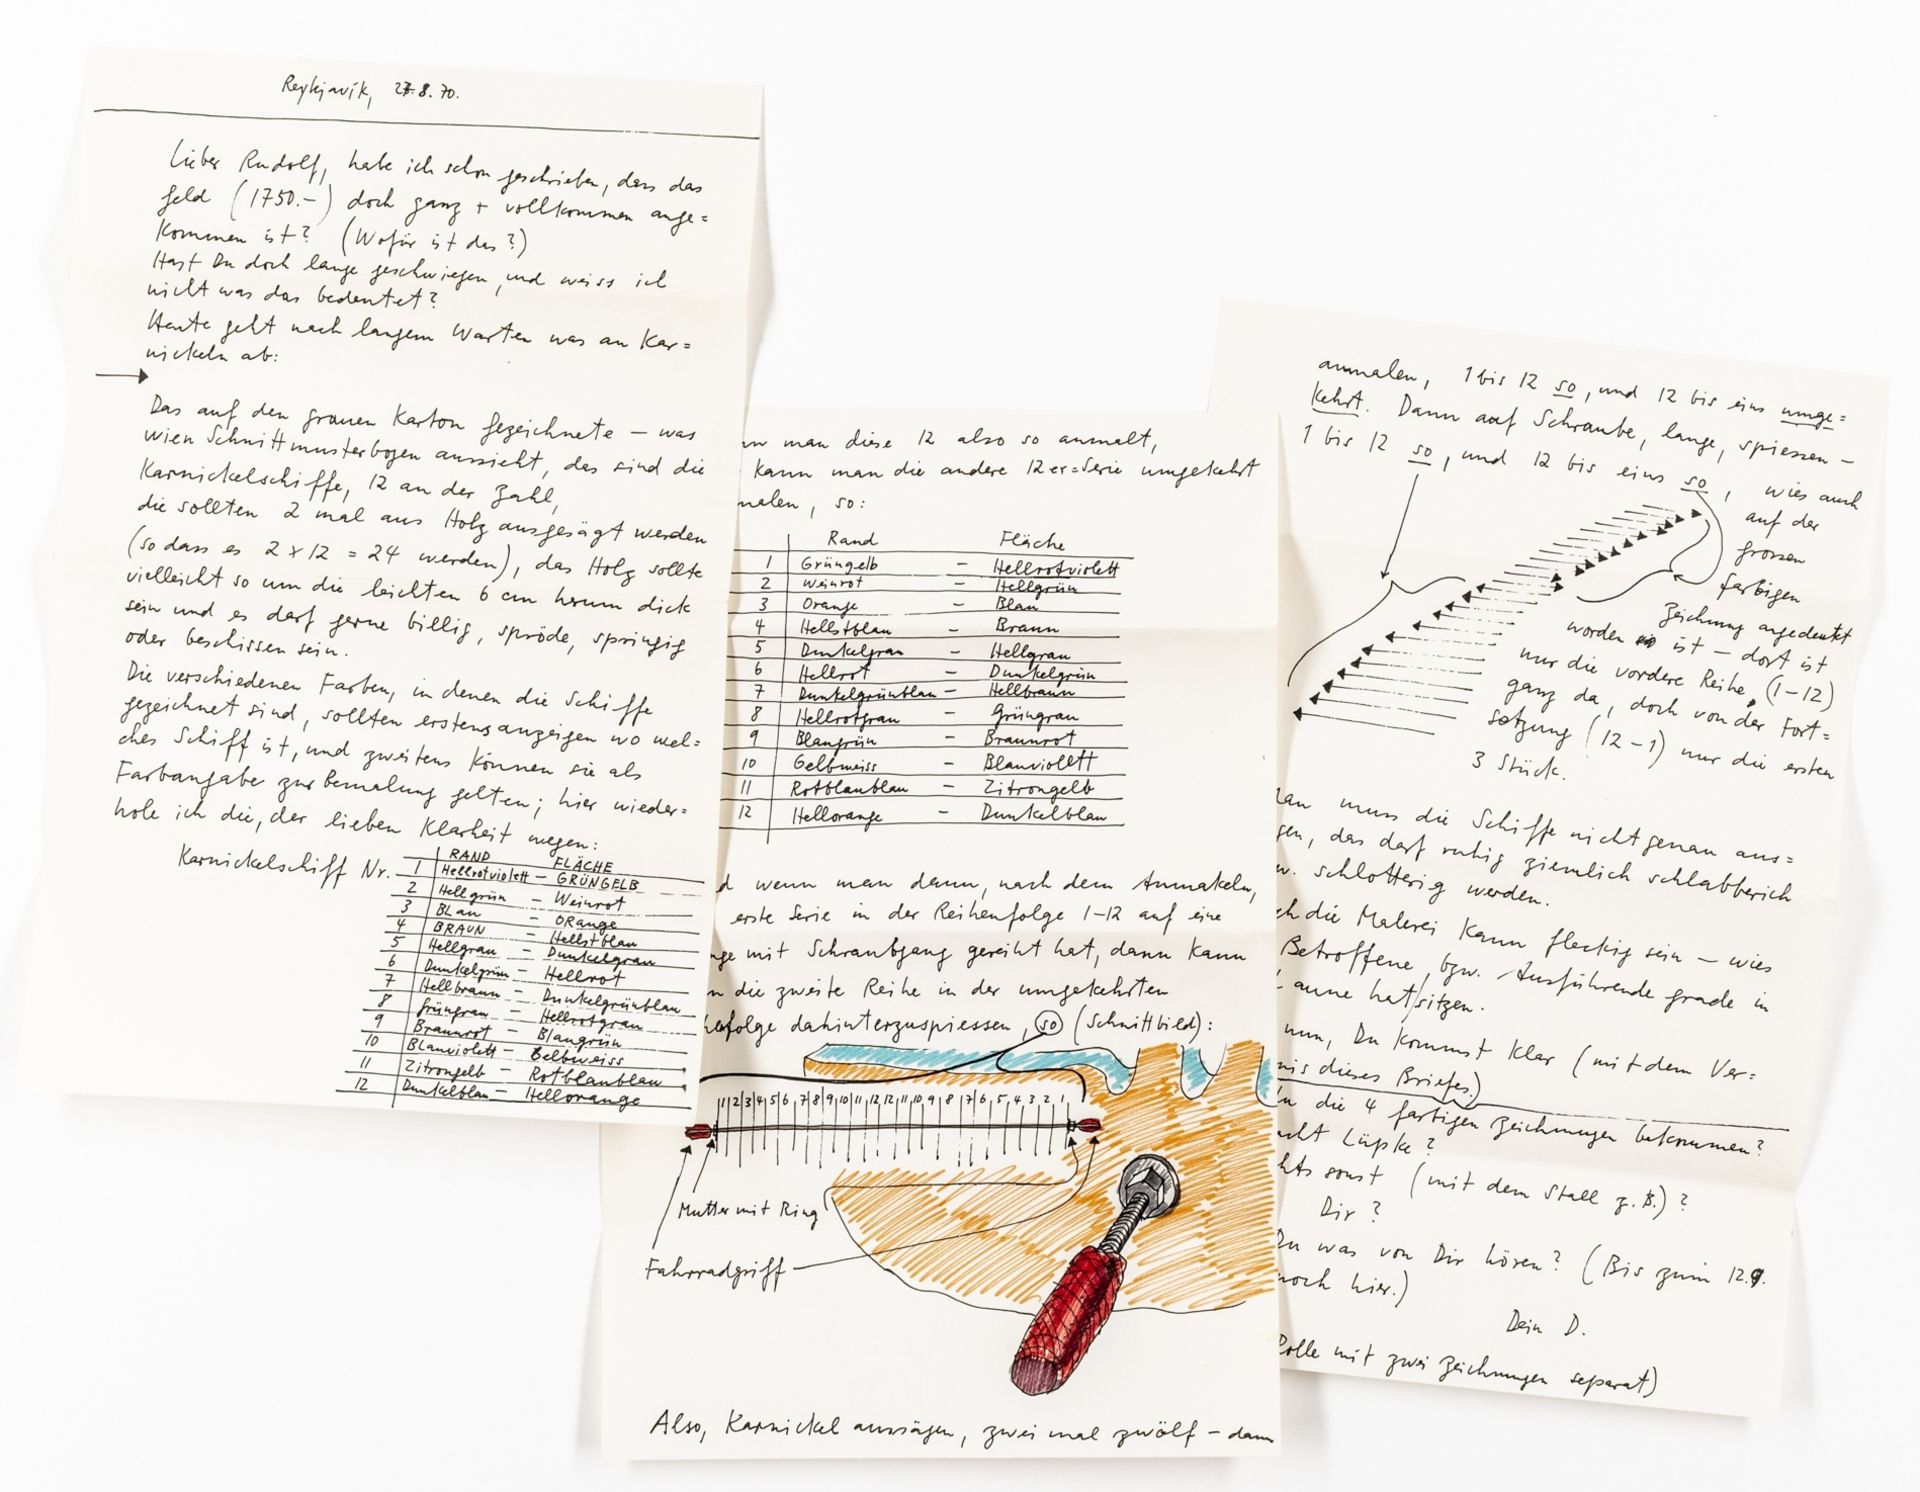 Reykjavík, 27.8.70.
Lieber Rudolf, habe ich schon geschrieben, dass das
Geld (1750.-) doch ganz + vollkommen ange=
kommen ist? (Wofür ist das?)
Hast Du doch lange geschwiegen, und weiss ich
nicht was das bedeutet?
Heute geht nach langem Warten was an Kar=
nickeln ab:
Das auf den grauen Karton gezeichnete – was
wien Schnittmusterbogen aussieht, das sind die
Karnickelschiffe, 12 an der Zahl,
die sollten 2 mal aus Holz ausgesägt werden
(so dass es 2 x 12 = 24 werden), das Holz sollte
vielleicht so um die leichten 6 cm herum dick
sein und es darf gerne billig, spröde, springig
oder beschissen sein.
Die verschiedenen Farben, in denen die Schiffe
gezeichnet sind, sollten erstens anzeigen wo wel=
ches Schiff ist, und zweitens können sie als
Farbangabe zur Bemalung gelten; hier wieder=
hole ich die, der lieben Klarheit wegen:
Karnickelschiff Nr.
RAND – FLÄCHE
1 Hellrotviolett – GRÜNGELB
2 Hellgrün – Weinrot
3 BLau – ORange
4 BRAUN – Hellstblau
5 Hellgrau – Dunkelgrau
6 Dunkelgrün – Hellrot
7 Hellbraun – Dunkelgrünblau
8 Grüngrau – Hellrotgrau
9 Braunrot – Blaugrün
10 Blauviolett – Gelbweiss
11 Zitrongelb – Rotblaublau
12 Dunkelblau – Hellorange
man diese 12 also so anmalt,
kann man die andere 12er=Serie umgekehrt
malen, so:
Rand Fläche
1 Grüngelb – Hellrotviolett
2 Weinrot – Hellgrün
3 Orange – Blau
4 Hellstblau – Braun
5 Dunkelgrau – Hellgrau
6 Hellrot – Dunkelgrün
7 Dunkelgrünblau – Hellbraun
8 Hellrotgrau – Grüngrau
9 Blaugrün – Braunrot
10 Gelbweiss – Blauviolett
11 Rotblaublau – Zitrongelb
12 Hellorange – Dunkelblau
wenn man dann, nach dem Anmakeln,
erste Serie in der Reihenfolge 1–12 auf eine
mit Schraubgang gereiht hat, dann kann
die zweite Reihe in der umgekehrten
dahinterzuspiessen, so (Schnittbild):
1 2 3 4 5 6 7 8 9 10 11 12 12 11 10 9 8 7 6 5 4 3 2 1
Mutter mit Ring
Fahrradgriff
Also, Karnickel aussägen, zwei mal zwölf – dann
anmalen, 1 bis 12 so, und 12 bis eins umge=
kehrt. Dann auf Schraube, lange, spiessen –
1 bis 12 so, und 12 bis eins so, wies auch
auf der
grossen
farbigen
Zeichnung angedeutet
worden ist – dort ist
nur die vordere Reihe (1–12)
ganz da, doch von der Fort=
setzung (12–1) nur die ersten
3 Stück.
muss die Schiffe nicht genau aus=
gen, das darf ruhig ziemlich schlabberich
w. schlotterig werden.
die Malerei kann fleckig sein – wies
Betroffene, bzw. Ausführende grade in
Laune hat/sitzen.
Du kommst klar (mit dem Ver=
nis dieses Briefes)
die 4 fartigen Zeichnungen bekommen?
cht Lüpke?
sonst (mit dem Stall z.B.)?
Dir?
Du was von Dir hören? (Bis zum 12.9.
noch hier.)
Dein D.
Rolle mit zwei Zeichnungen separat)